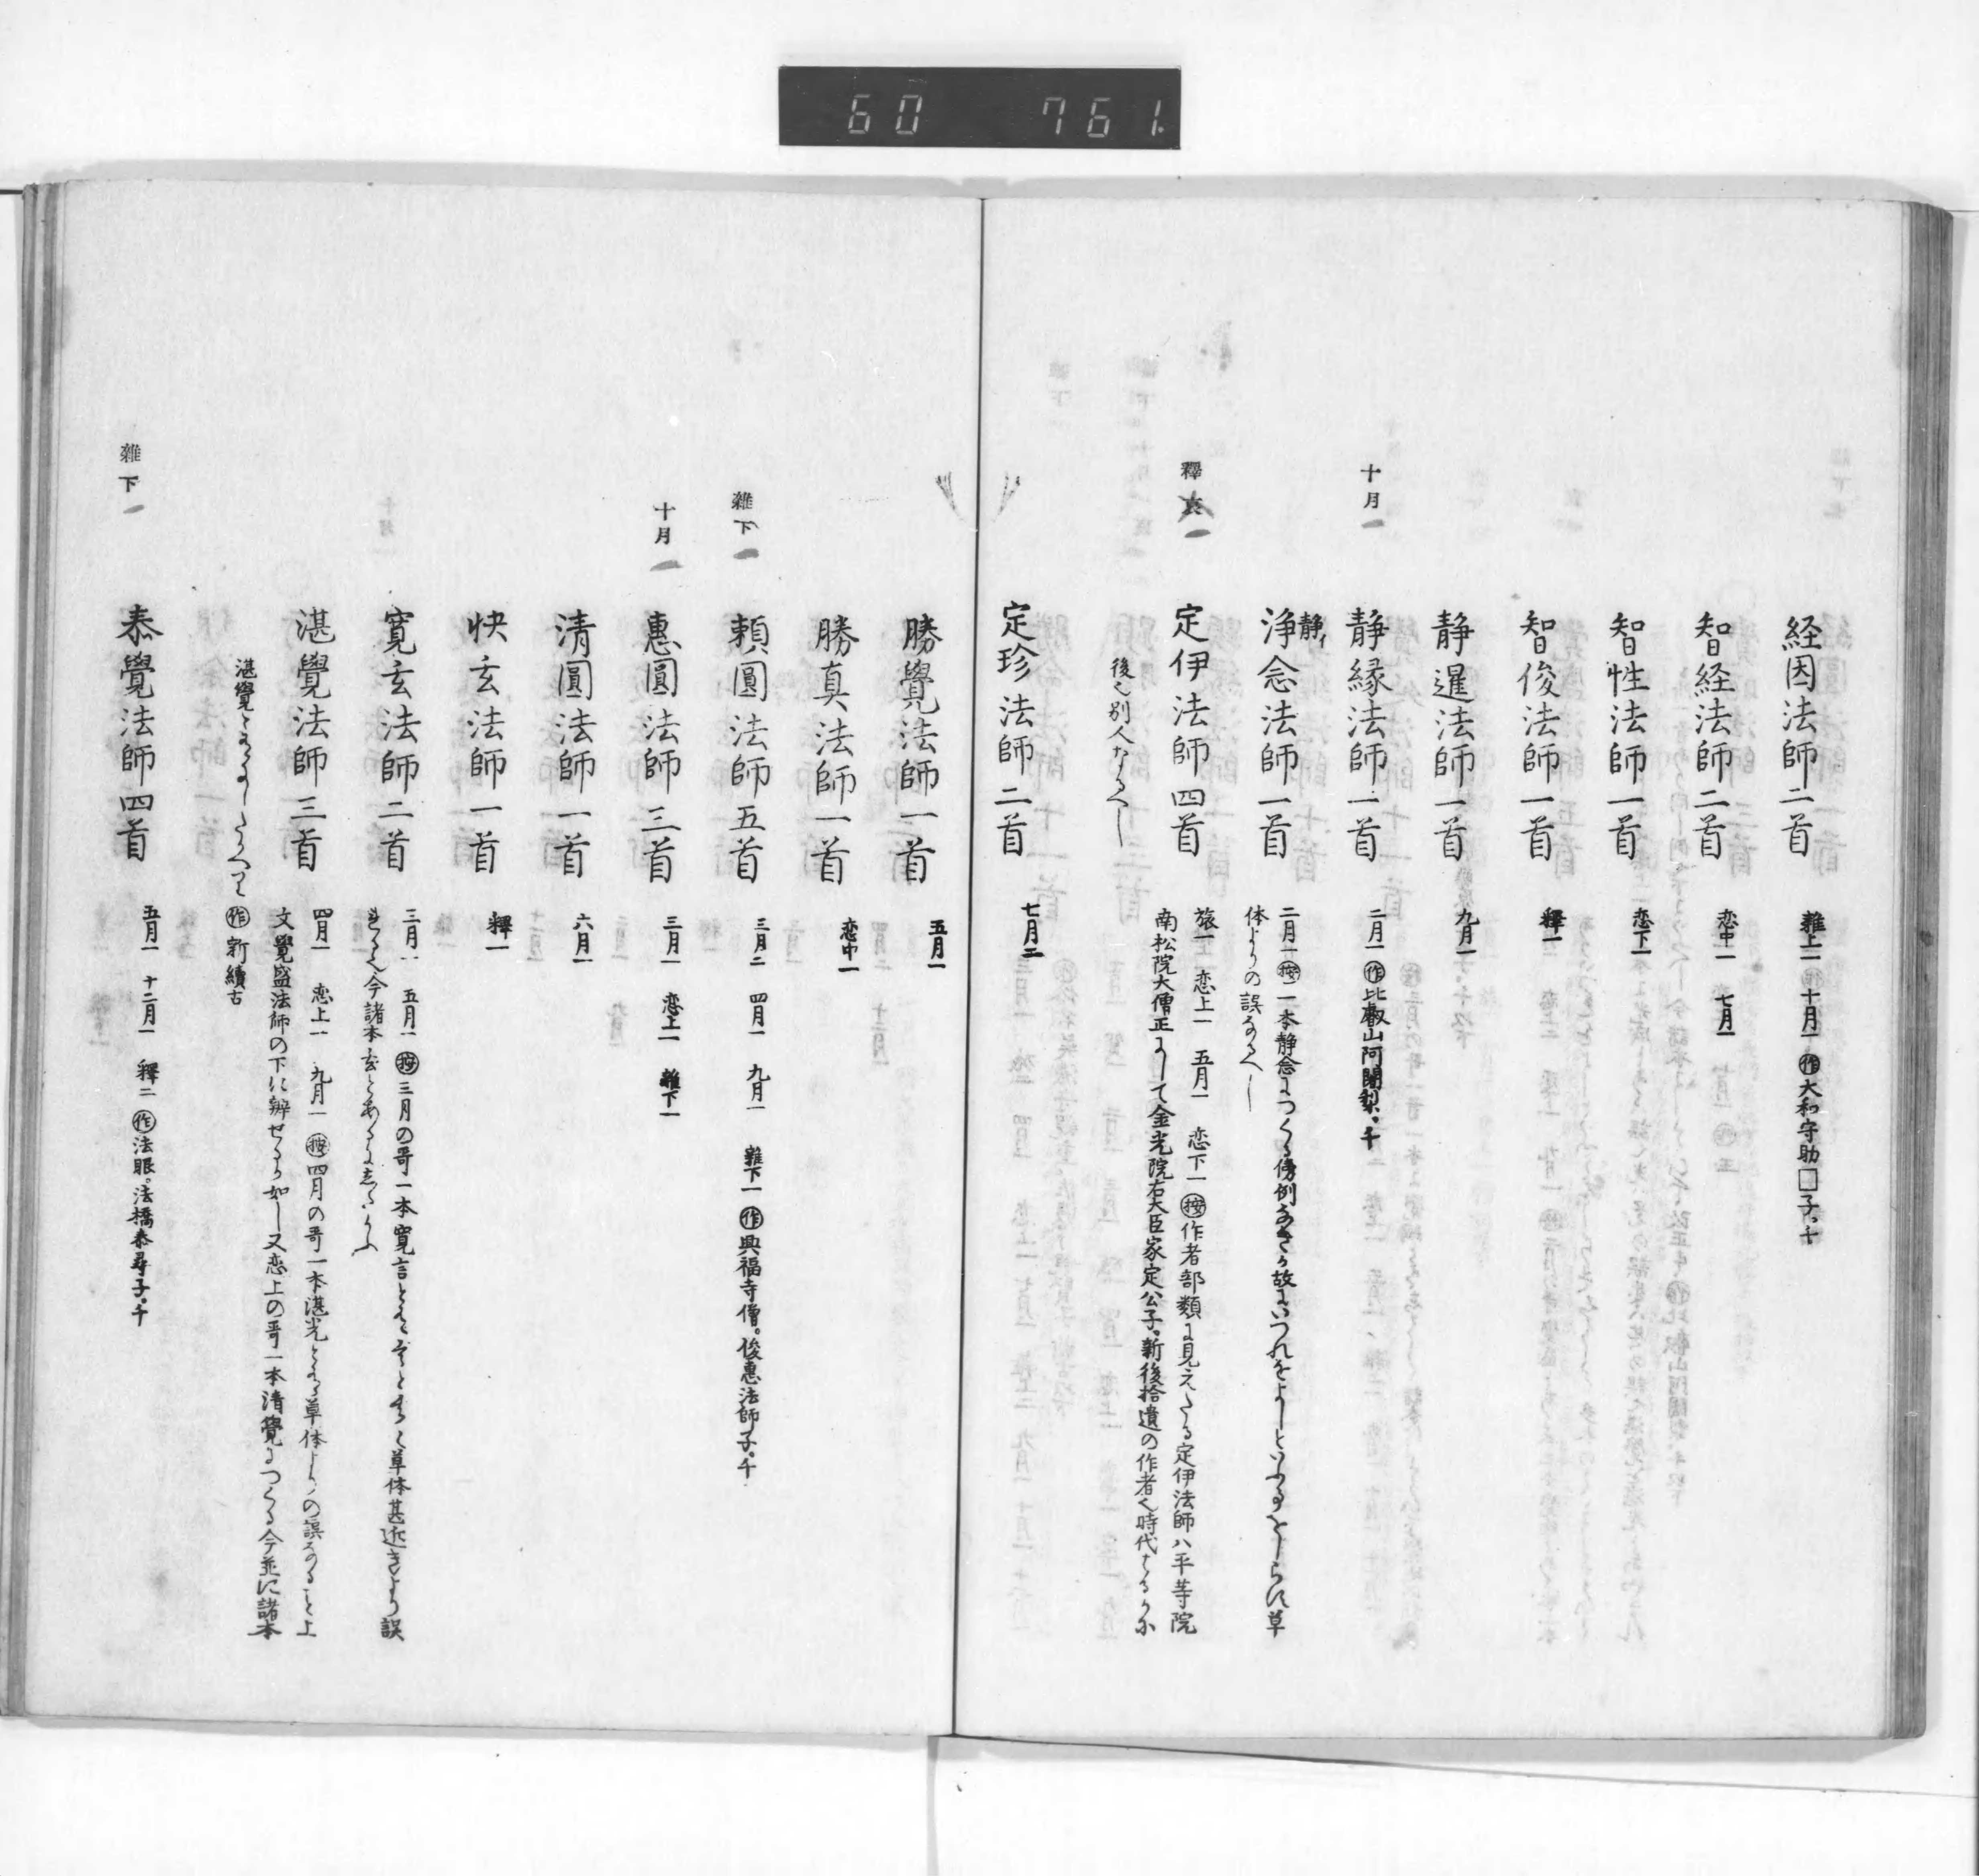 60 761.
経因法師二首 雑上一 十月一 作 大和守助□子。千
智経法師二首 恋中一 七月一
智性法師一首 恋下一
智俊法師一首 釋一
静暹法師一首 九月一
十月一
静縁法師一首 二月一 作 比叡山阿闍梨。千
静イ
浄念法師一首 二月一 按 一本静念
体よりの誤なるへし
釋一
定伊法師四首 旅一 恋上一 五月一 恋下一 按 作者部類に見えたる定伊法師ハ平等院
南松院大僧正にして金光院右大臣家定公子。新後拾遺の作者也時代
後也別人なるへし
定珍法師二首 七月二
勝覺法師一首 五月一
勝真法師一首 恋中一
雑下一
頼圓法師五首 三月二 四月一 九月一 雑下一 作 興福寺僧。俊惠法師子。千
十月一
惠圓法師三首 三月一 恋上一 雑下一
清圓法師一首 六月一
快玄法師一首 釋一
寛玄法師二首 三月一 五月一 按 三月の哥一本寛言と 草体甚近きより誤
今諸本玄とある
湛覺法師三首 四月一 恋上一 九月一 按 四月の哥一本湛光と 草体よりの誤なること上
文覺盛法師の下に辨せるか如し又恋上の哥一本清覺につくる今並に諸本
湛覺と 作 新續古
雑下一
泰覺法師四首 五月一 十二月一 釋二 作 法眼。法橋泰尋子。千